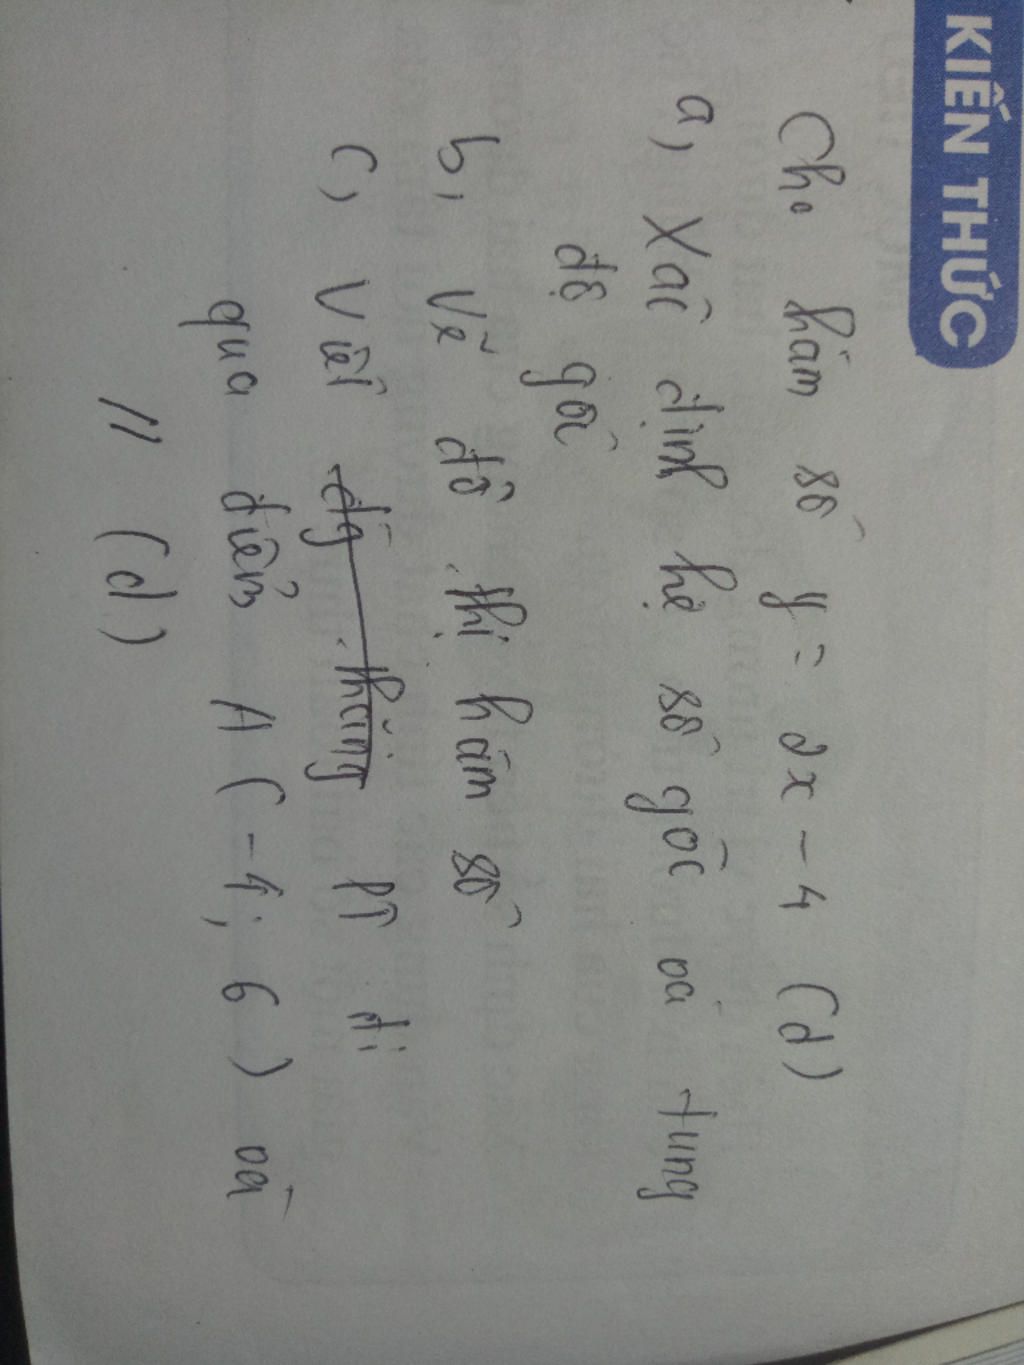 KIẾN THỨC
Cho hàm số y = 2x - 4 (d)
a, Xác định hệ số góc và tung
độ gốc
b, Vẽ đồ thị hàm số
c, Viết đg thẳng PT đi
qua điểm A (-1; 6) và
// (d)